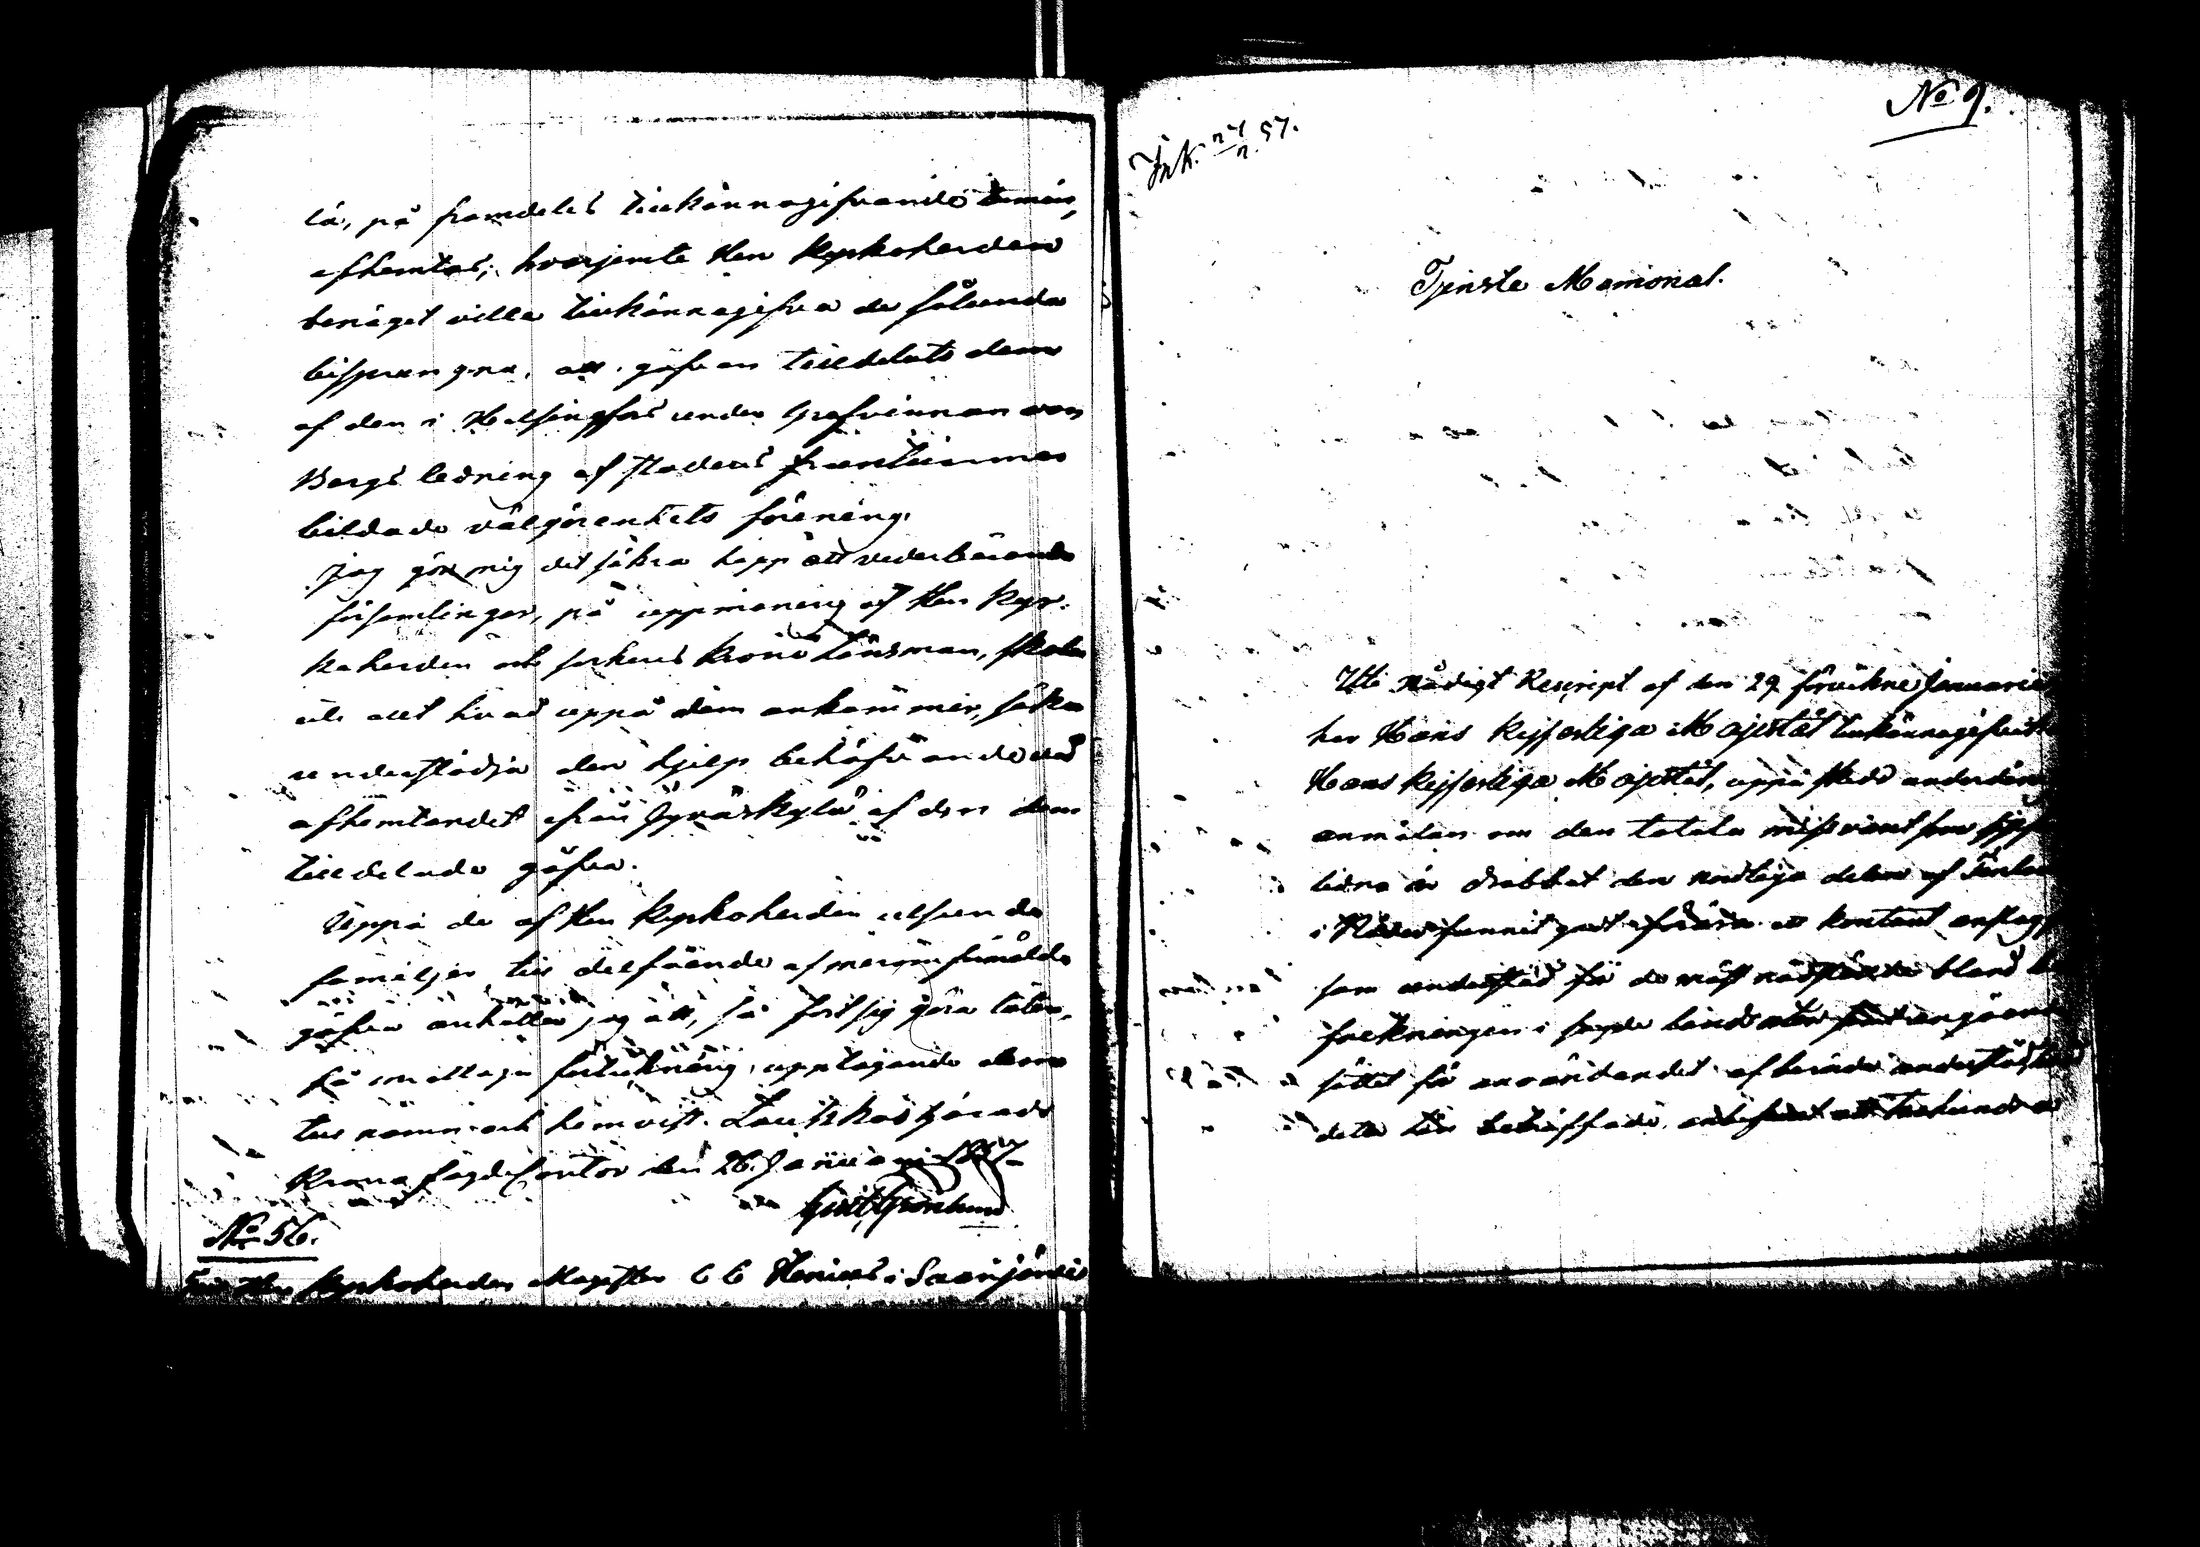 lä, på framdeles tillkännagifvande
afhemtas; hvarjemte Herr Kyrkoherden
benäget ville tillkännagifva de sålunda
bisprungna, att gåfvan tilldelats dem
af den i Helsingfors under Grefvinnan von
Bergs ledning af stadens fruntimmer
bildade välgörenhets förening.
Jag gör mig det säkra hopp att vederbörande
församlingar, på uppmaning af Herr Kyr-
koherden och socknens Krono Länsman, skola
allt hvad uppå dem ankommer, söka
understödja den hjelp behöfvande vid
afhemtandet ifrån Jyväskylä af den dem
tilldelade gåfva.
Uppå de af Herr Kyrkoherden utsedde
familjer till delfående af meromförmälde
gåfva anhåller jag att, så fort sig göra låter,
få emottaga förteckning, upptagande deras
till namn och hemvist. Laukkas härads
Krono fogde Contor den 26 Januari 1857.
Gust Grönlund
No 56.
Till Herr Kyrkoherden Magister Henricus i Saarijärvi
No 9.
Ink. 57.
Tjenste Memorial.
Uti nådigt Rescript af den 29 förvikne Januarii
har Hans Kejserliga Majestät tillkännagifvit
Hans Kejserliga Majestät, uppå skedd underdånig
anmälan om den totala missvext som
ledna år drabbat den nordliga delen af Finland
i Nåder funnit godt ett kontant anslag
som understöd för de mäst nödlidande bland
folkningen i sagde
sättet för användandet af berörde understöd,